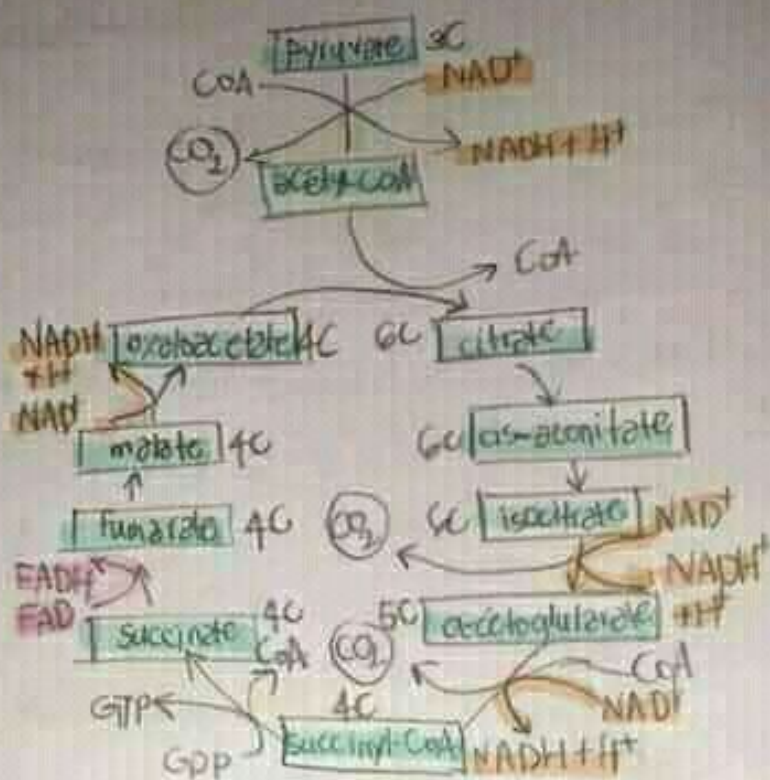 pyruvate 3C
CoA
NAD+
CO2
NADH + H+
acetyl-CoA
CoA
NADH
+H
oxaloacetate 4C
6C citrate
NAD
malate 4C
6C cis-aconitate
fumarate 4C
CO2
6C isocitrate
NAD+
NADH+
+H
FADH
FAD
succinate 4C
CoA
CO2
5C
CoA
NAD+
GTP
GDP
4C
succinyl-CoA
NADH + H+